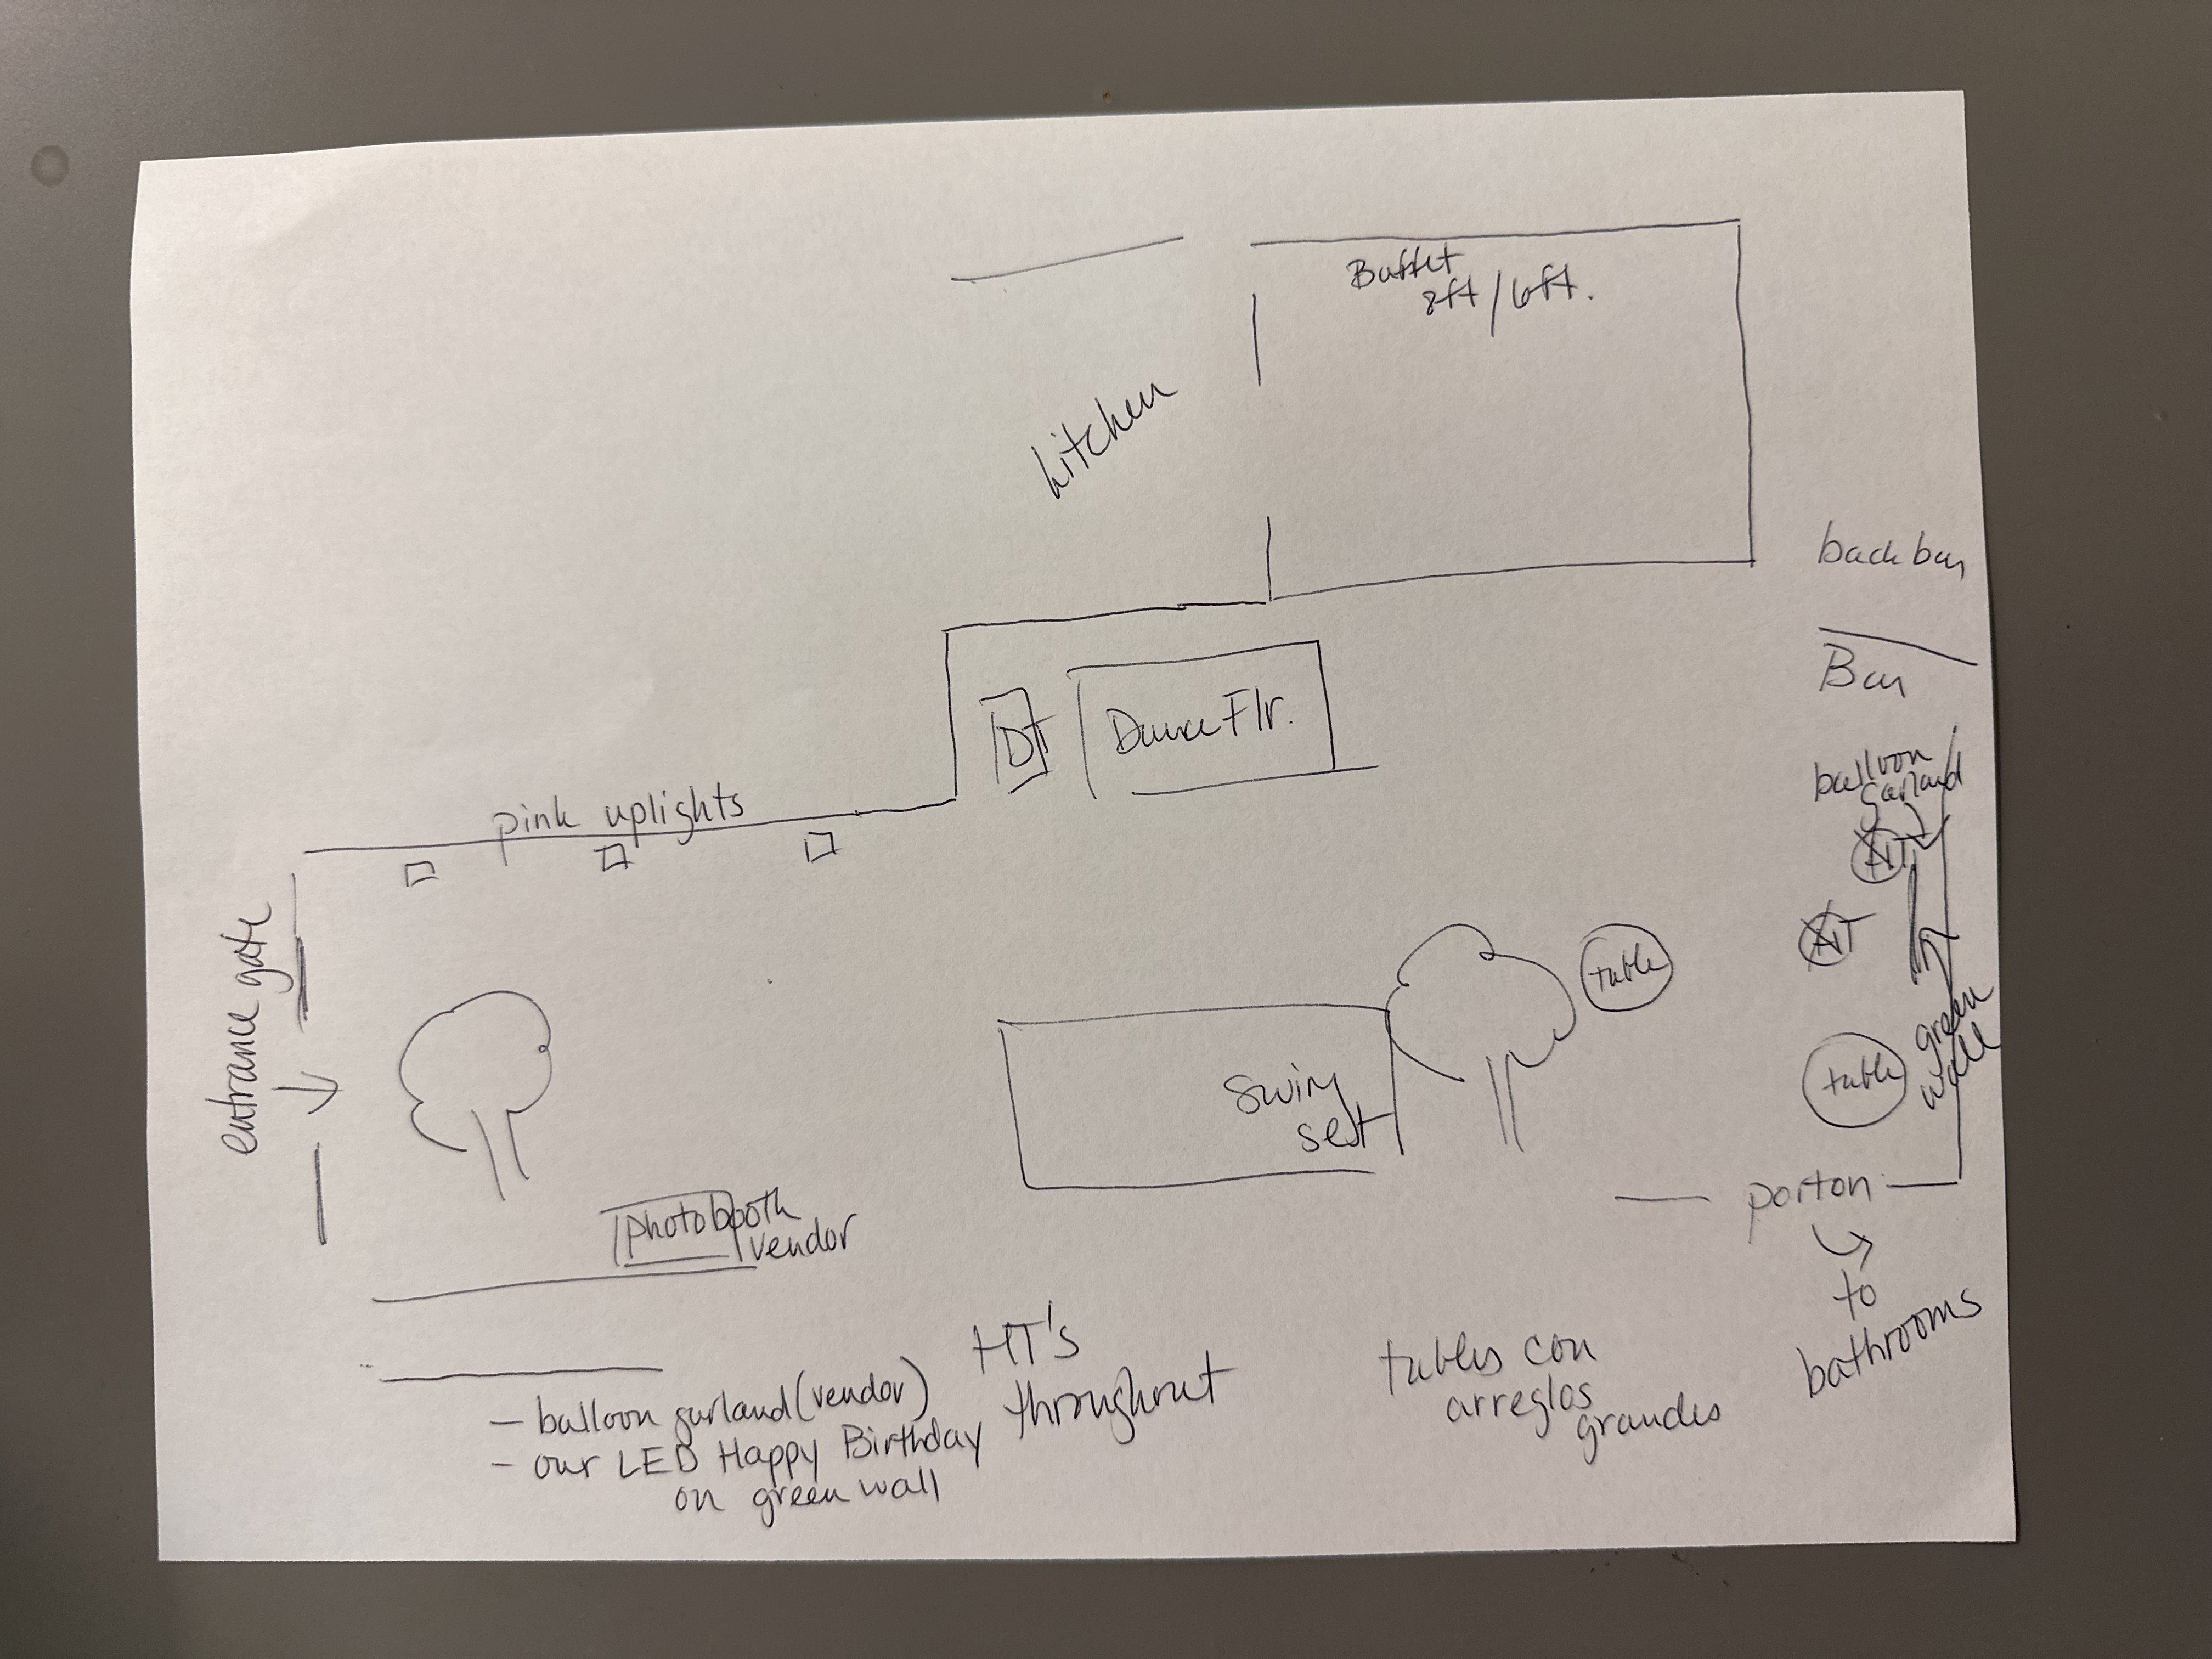 Buffet
8ft/6ft.
kitchen
back bar
Bar
DJ
Dance Flr.
balloon
garland
pink uplights
HT
HT
entrance gate
table
table
green
wall
Swing
set
porton
to
bathrooms
photobooth
vendor
HT's
throughout
tables con
arreglos
grandes
- balloon garland (vendor)
- our LED Happy Birthday
on green wall